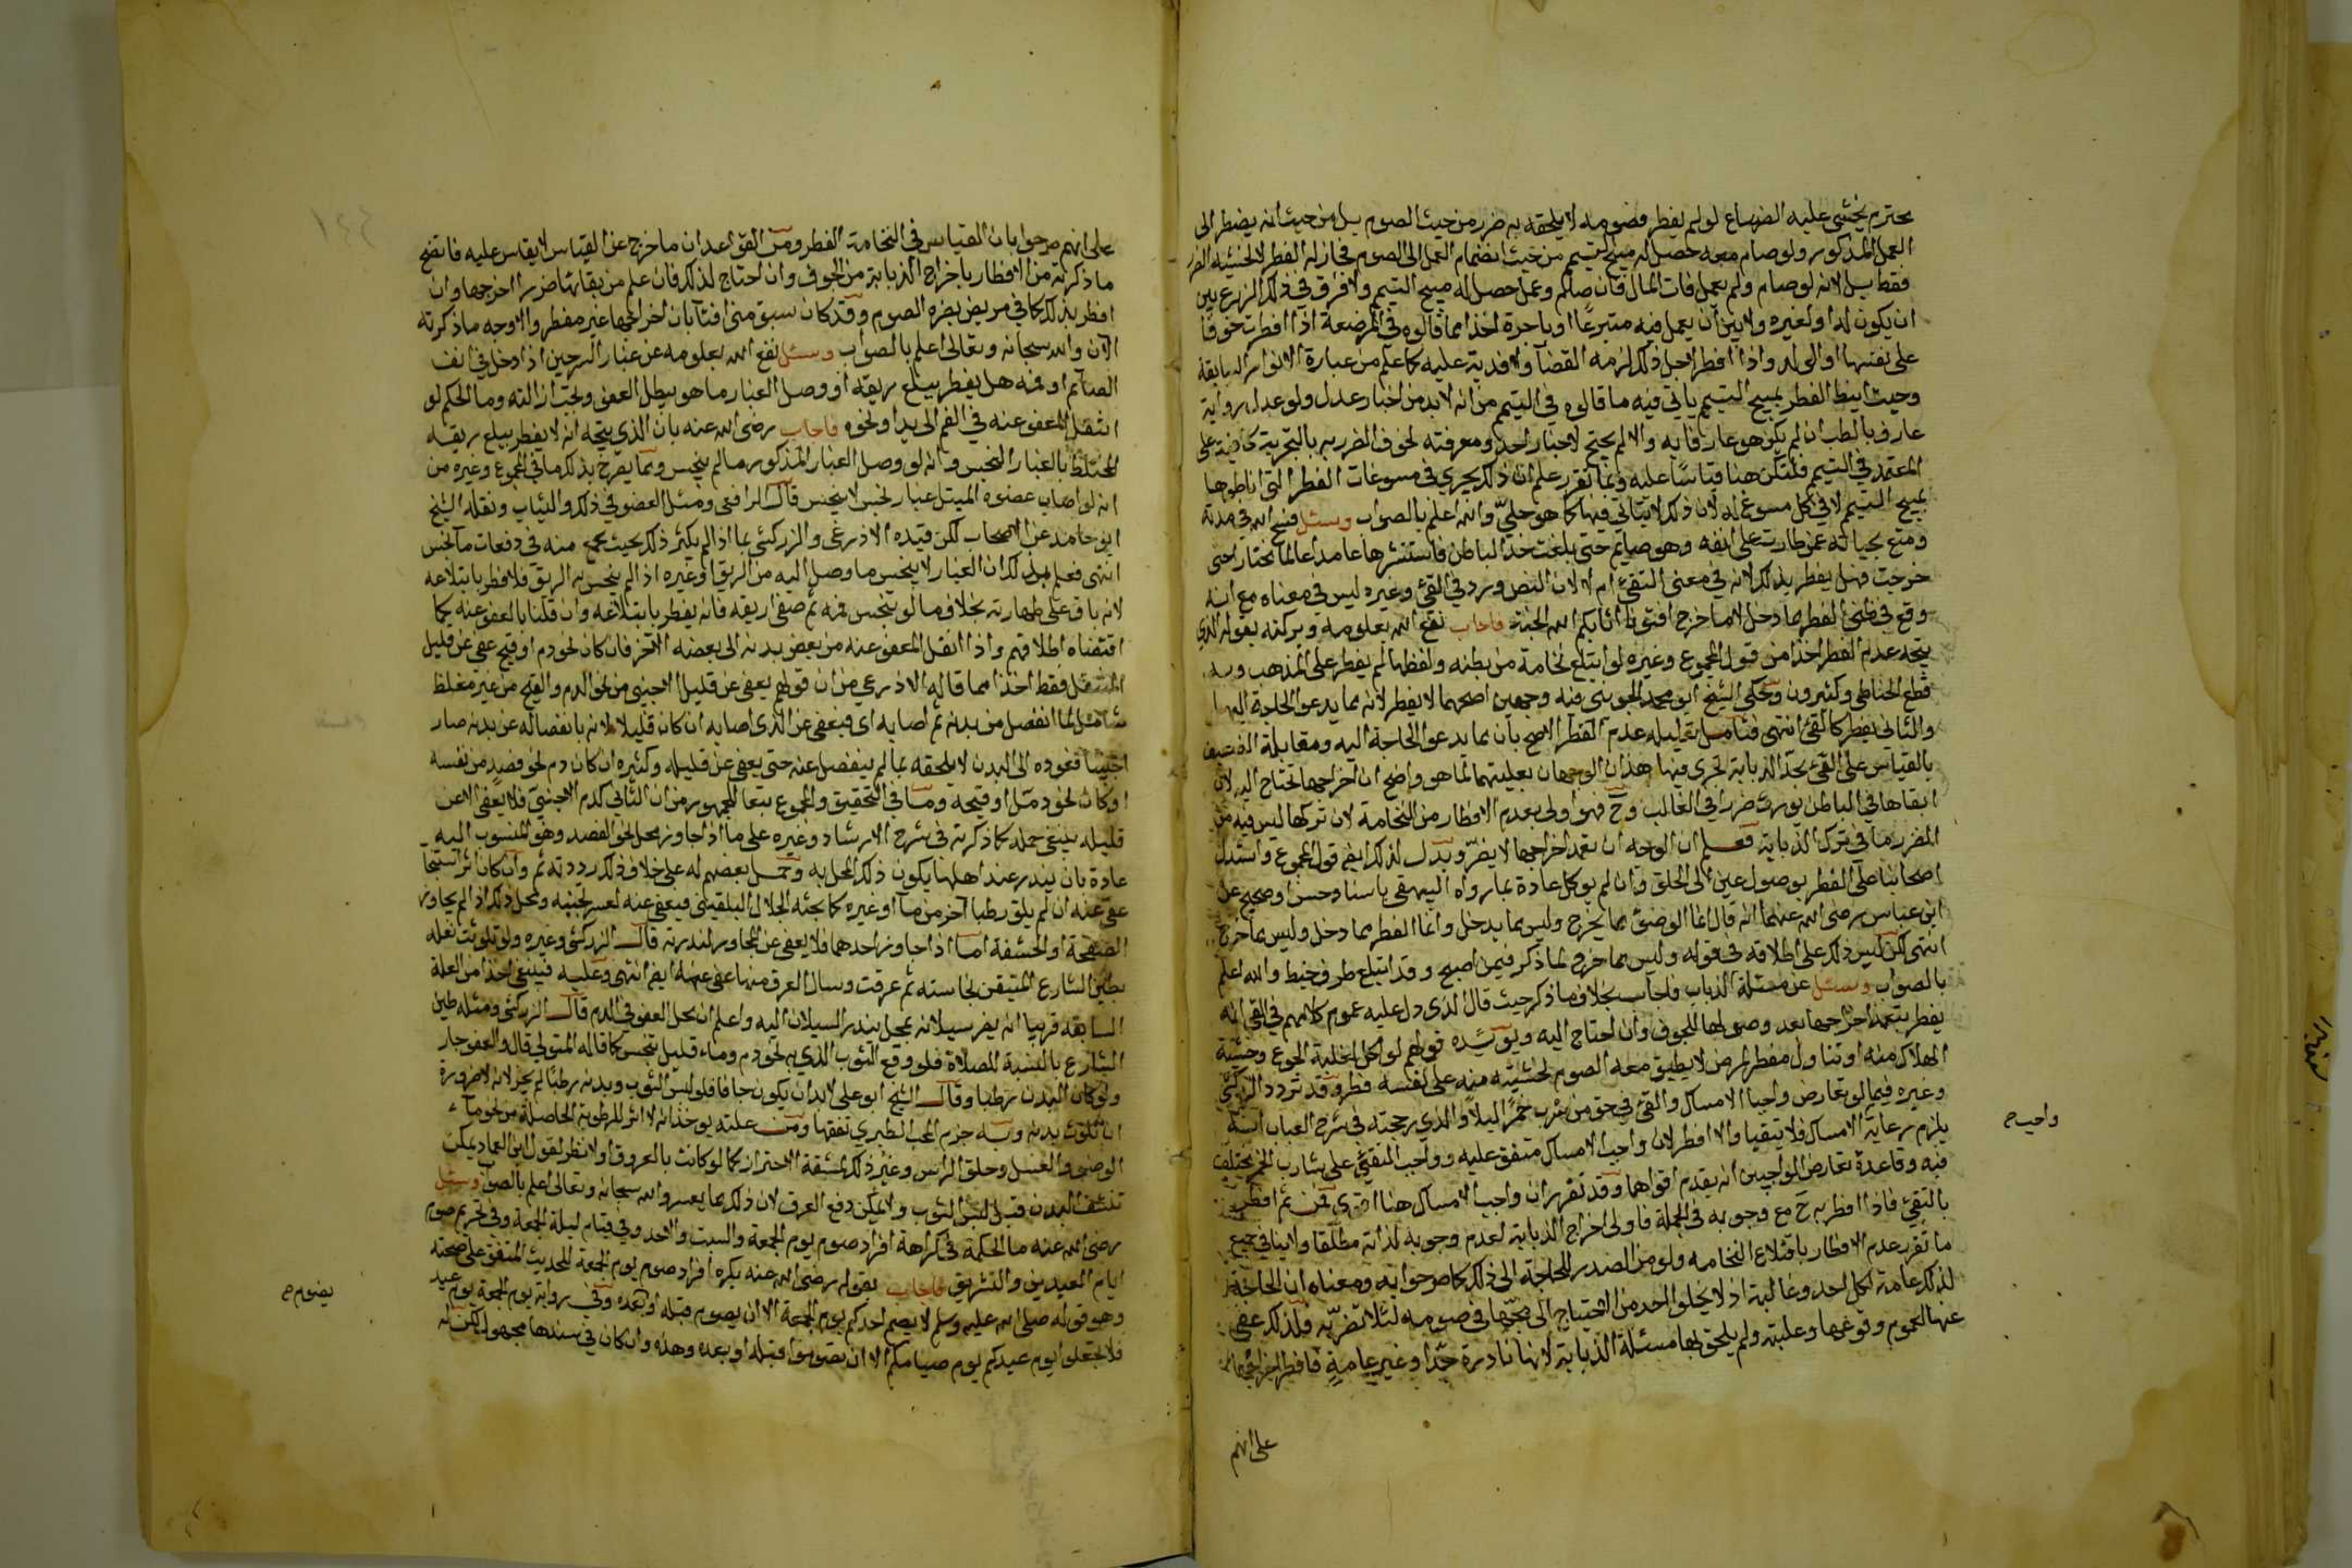 محترم يخشى عليه الضياع لو لم يفطر فصومه لا يلحقه به ضرر من حيث الصوم بل من حيث انه يضطر الى
العمل المذكور ولو صام معه حصل له مبيح تيمم من حيث انضمام العمل الى الصوم فجاز له الفطر لا لخشية الضرر
فقط بل لانه لو صام ولم يعمل فات المال فان صام وعمل حصل له مبيح التيمم ولا فرق في ذلك الزرع بين
ان يكون له او لغيره ولا بين ان يعمل فيه متبرعا او باجرة اخذا مما قالوه في المرضعة اذا افطرت خوفا
على نفسها او الولد واذا افطر لاجل ذلك لزمه القضآ ولا فدية عليه كما علم من عبارة الانوار السابقة
وحيث انيط الفطر بمبيح التيمم ياتي فيه ما قالوه في التيمم من انه لا بد من اخبار عدل ولو عدل رواية
عارف بالطب ان لم يكن هو عارفا به والا لم يحتج لاخبار احد ومعرفته لخوف الضرر به بالتجربة كافية على
المعتمد في التيمم فلتكن هنا قياسا عليه وبما تقرر علم ان ذلك يجري في مسوغات الفطر التي اناطوها
بمبيح التيمم لا في كل مسوغ له لان ذلك لا يتاتي فيها كما هو جلي والله اعلم بالصواب وسئل فسح الله في مدته
ومتع بحياته عمن طارت على انفه وهو صايم حتى بلغت حد الباطن فاستنشرها عامدا عالما مختارا حتى
خرجت فهل يفطر بذلك لانه في معنى التقئ ام لا لان النص ورد في القئ وغيره ليس في معناه مع انه
وقع في ظني الفطر مما دخل لا مما خرج افتونا اثابكم الله الجنة فاجاب نفع الله بعلومه وبركته بقوله الذي
يتجه عدم الفطر اخذا من قول المجموع وغيره لو ابتلع نخامة من بطنه ولفظها لم يفطر على المذهب وبه
قطع الحناطي وكثيرون وحكي الشيخ ابو محمد الجويني فيه وجهين اصحهما لا يفطر لانه مما يدعو الحاجة اليها
والثاني يفطر كالقئ انتهى فتامل تعليله عدم الفطر الاصح بان مما يدعو الحاجة اليه ومقابلة الضعيف
بالقياس على القئ تجد الذبابة يجري فيها هذان الوجهان بعليتهما لما هو واضح ان اخراجها تحتاج اليه لان
ابقاها في الباطن يورث ضررا في الغالب وح فهو اولى بعدم الافطار من النخامة لان تركها ليس فيه من
الضرر ما في ترك الذبابة فعلم ان الوجه ان تعمد اخراجها لا يضر ويدل لذلك ايضا قول المجموع واستدل
اصحابنا على الفطر بوصول عين الى الحلق وان لم يوكل عادة بما رواه البيهقي باسناد حسن او صحيح عن
ابن عباس رضى الله عنهما انه قال انما الوضئ مما يخرج وليس مما يدخل وانما الفطر مما دخل وليس مما خرج
انتهى لكن ليس ذلك على اطلاقه في قوله وليس مما خرج لما ذكر فيمن اصبح وقد ابتلع طرف خيط والله اعلم
بالصواب وسئل عن مسئلة الذباب فاجاب بخلاف ما ذكر حيث قال الذي دل عليه عموم كلامهم في القئ انه
يفطر بتعمد اخراجها بعد وصولها للجوف وان احتاج اليه ويؤيده قولهم لو اكل لغلبة الجوع وخشية
الهلاك منه او تناول مفطر لمرض لا يطيق معه الصوم لخشيته منه على نفسه فطر وقد تردد الزركشي
وغيره فيما لو تعارض واجبا الامساك والقئ في حق من شرب خمرا ليلا والذي رجحته في شرح العباب انه
يلزم رعاية الامساك فلا يتقيا والا افطر لان واجب الامساك متفق عليه وواجب التقئ على شارب الخمر مختلف
فيه وقاعدة تعارض الواجبين انه يقدم اقواهما وقد تقرر ان واجب الامساك هنا اقوى فمن ثم افطر
بالتقئ فاذا افطر به ح مع وجوبه في الجملة فاولى اخراج الذبابة لعدم وجوبه لذاته مطلقا ولا ينافي جميع
ما تقرر عدم الافطار باقتلاع النخامه ولو من الصدر للحاجة الى ذلك كما صرحوا به ومعناه ان الحاجة
لذلك عامة لكل احد وغالبة اذ لا يخلو احد من احتياج الى مجها في صومه لئلا تضر به فلذلك عفى
عنها لعموم وقوعها وغلبته ولم يلحق بها مسئلة الذبابة لانها نادرة جدا وغير عامة فافطر باخراجها
على انهم
واجب ح
على انهم صرحوا بان القياس في النخامة الفطر ومن القواعد ان ما خرج عن القياس لا يقاس عليه فاتضح
ما ذكرته من الافطار باخراج الذبابة من الجوف وان احتاج لذلك فان علم من بقائها ضررا اخرجها وان
افطر بذلك كما في مريض يضره الصوم وقد كان سبق مني افتآ بان اخراجها غير مفطر والاوجه ما ذكرته
الان والله سبحانه وتعالى اعلم بالصواب وسئل نفع الله بعلومه عن غبار السرجين اذا دخل في انف
الصائم او فمه هل يفطر ببلع ريقه او وصل الغبار ما هو يبطل العفو وتجب ازالته وما الحكم لو
انتقل المعفو عنه في الفم الى يد او نحوه فاجاب رضى الله عنه بان الذي يتجه انه لا يفطر ببلع ريقه
المختلط بالغبار النجس وانه لو وصل الغبار المذكور مالم ينجس ومما يصرح بذلك ما في المجموع وغيره من
انه لو اصاب عضوه المبتل غبار نجس لا ينجس قال الرافعي ومثل العضو في ذلك والثياب ونقله الشيخ
ابو حامد عن الاصحاب لكن قيده الاذرعي والزركشي بما اذا لم يكثر ذلك بحيث يجمع منه في دفعات ما نجس
انتهى فعلم بذلك ان الغبار لا ينجس ما وصل اليه من الريق او غيره اذا لم ينجس به الريق فلا فطر بابتلاعه
لانه باق على طهارته بخلاف ما لو تنجس فمه ثم صفى ريقه فانه يفطر بابتلاعه وان قلنا بالعفو عنه كما
اقتضاه اطلاقهم واذا انتقل المعفو عنه من بعض بدنه الى بعضه الآخر فان كان نحو دم او قيح عفي عن قليل
المنتقل فقط اخذا مما قاله الاذرعي من ان قولهم يعفى عن قليل الاجنبي من نحو الدم والقيح من غير مغلظ
شامل لما انفصل من بدنه ثم اصابه اي فيعفى عن الذي اصابه ان كان قليلا لانه بانفصاله عن بدنه صار
اجنبيا فعوده الى البدن لا يلحقه بما لم ينفصل عنه حتى يعفى عن قليله وكثيره ان كان دم نحو فصد من نفسه
او كان نحو دمل او قيحه وما في التحقيق والمجموع تبعا للجمهور من ان الثاني كدم الاجنبي فلا يعفى الا عن
قليله ينبغي حمله كما ذكرته في شرح الارشاد وغيره على ما اذا جاوز محل نحو الفصد وهو المنسوب اليه
عادة بان يندر عند اهلها يكون ذلك المحل به وحمل بعضهم له على خلاف ذلك رددته ثم وان كان اثر استنجا
عفي عنه ان لم يلق رطبا آخر من مآ او غيره كما بحثه الجلال البلقيني فيعفى عنه لعسر تجنبه ومحل ذلك اذا لم يجاوز
الصفحة او الحشفة اما اذا جاوز احدهما فلا يعفى عن المجاوز لندرته قال الزركشي وغيره ولو تلوثت نعله
بطين الشارع المتيقن نجاسته ثم عرقت وسال العرق منها عفي عنه ايضا انتهى وعليه فينبغي اخذا من العلة
السابقة قريبا انه يضر سيلانه بمحل يندر السيلان اليه واعلم ان محل العفو في الدم قال الزركشي ومثله طين
الشارع بالنسبة للصلاة فلو وقع الثوب الذي به نحو دم وماء قليل تنجس كما قاله المتولي قال والعفو جار
ولو كان البدن رطبا وقال الشيخ ابو علي لا بد ان يكون جافا فلو لبس الثوب وبدنه رطب لم يجز لانه لا ضرورة
ان تلوث بدنه وبه جزم المحب الطبري تفقها ومن علته يوخذ انه لا اثر للرطوبة الحاصلة من نحو مآء
الوضوء والغسل وحلق الراس وغير ذلك لمشقة الاحتراز كما لو كانت بالعروق اولا نظر لقول ابن العماد يمكن
تنشف البدن قبل لبس الثوب ولا يمكن دفع العرق لان ذلك مما يعسر والله سبحانه وتعالى اعلم بالصواب وسئل
رضى الله عنه ما الحكمة في كراهة افراد صوم يوم الجمعة والسبت والاحد وفي قيام ليلة الجمعة وفي تحريم صوم
ايام العيدين والتشريق فاجاب بقوله رضى الله عنه يكره افراد صوم يوم الجمعة للحديث المتفق على صحته
وهو قوله صلى الله عليه وسلم لا يصم احدكم يوم الجمعة الا ان يصوم قبله او بعده وفي رواية يوم الجمعة يوم عيد
فلا تجعلوا يوم عيدكم يوم صيامكم الا ان تصوموا قبله او بعده وهذه وان كان في سندها مجهول لكن له
يصوم ح